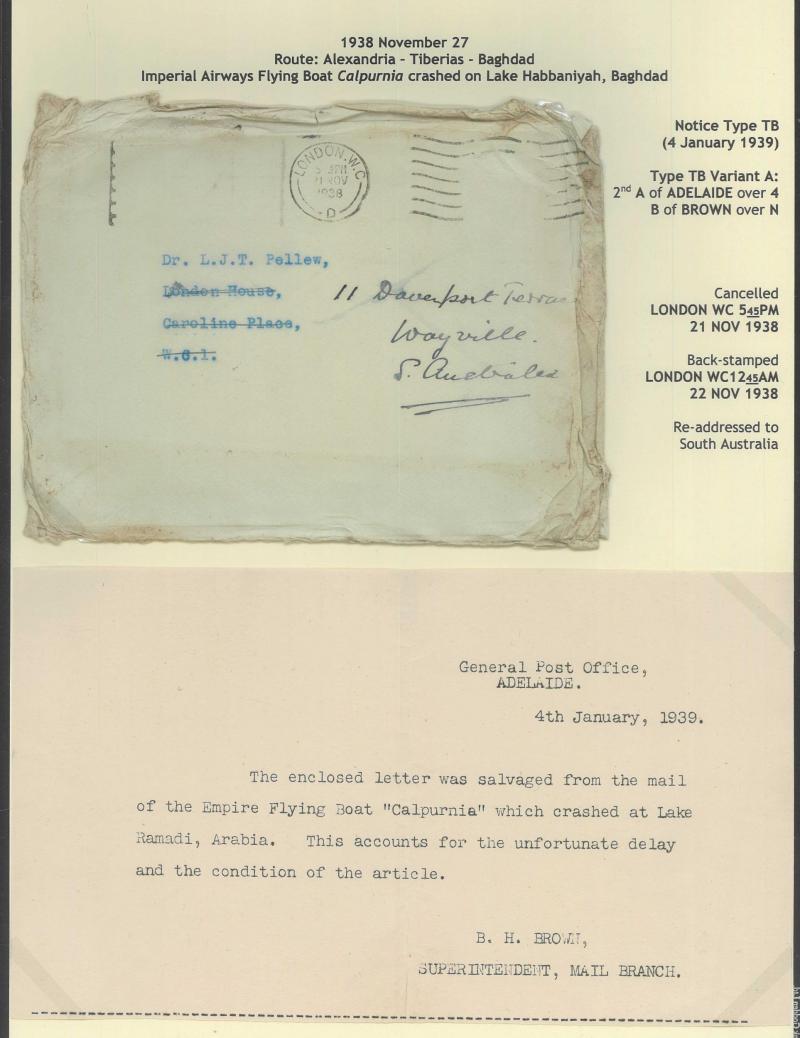 1938 November 27
Route: Alexandria - Tiberias - Baghdad
Imperial Airways Flying Boat Calpurnia crashed on Lake Habbaniyah, Baghdad
Notice Type TB
(4 January 1939)
Type TB Variant A:
2nd A of ADELAIDE over 4
B of BROWN over N
Cancelled
LONDON WC 545PM
21 NOV 1938
Back-stamped
LONDON WC1245AM
22 NOV 1938
Re-addressed to
South Australia
LONDON. W.C.
21 NOV
1938
D
Dr. L.J.T. Pellew,
London House,
Caroline Place,
W.C.1.
11 Davenport Terrac
Wayville.
S. Australia
General Post Office,
ADELAIDE.
4th January, 1939.
The enclosed letter was salvaged from the mail
of the Empire Flying Boat "Calpurnia" which crashed at Lake
Ramadi, Arabia. This accounts for the unfortunate delay
and the condition of the article.
B. H. BROWN,
SUPERINTENDENT, MAIL BRANCH.